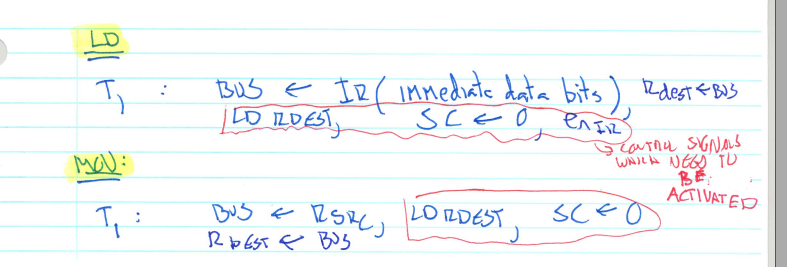 LD
T1 : BUS ← IR (immediate data bits), Rdest ← BUS
LD RDEST, SC ← 0, enIR
→ CONTROL SIGNALS
WHICH NEED TO
BE
ACTIVATED
MOV:
T1 : BUS ← RSRC, LD RDEST, SC ← 0
RDEST ← BUS